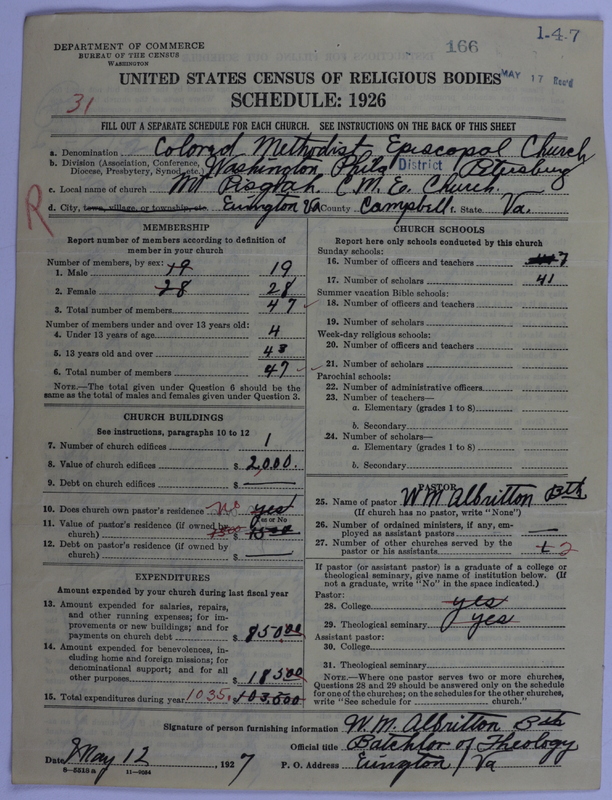 DEPARTMENT OF COMMERCE
BUREAU OF THE CENSUS
WASHINGTON
166
1-4-7
MAY 17 Rec'd
UNITED STATES CENSUS OF RELIGIOUS BODIES
SCHEDULE: 1926
31
FILL OUT A SEPARATE SCHEDULE FOR EACH CHURCH. SEE INSTRUCTIONS ON THE BACK OF THIS SHEET
a. Denomination Colored Methodist Episcopal Church
b. Division (Association, Conference, Diocese, Presbytery, Synod, etc.) Washington, Phila District Petersburg
c. Local name of church Mt Pisgah C.M.E. Church.
d. City, town, village, or township, etc. Evington Va County Campbell f. State Va.
R
MEMBERSHIP
Report number of members according to definition of member in your church
Number of members, by sex:
1. Male 19 19
2. Female 28 28
3. Total number of members 47
Number of members under and over 13 years old:
4. Under 13 years of age 4
5. 13 years old and over 43
6. Total number of members 47
NOTE.—The total given under Question 6 should be the same as the total of males and females given under Question 3.
CHURCH BUILDINGS
See instructions, paragraphs 10 to 12
7. Number of church edifices 1
8. Value of church edifices $ 2,000.
9. Debt on church edifices $ —
10. Does church own pastor's residence? No yes
Yes or No
11. Value of pastor's residence (if owned by church) 1500 $ 1500
12. Debt on pastor's residence (if owned by church) $ —
EXPENDITURES
Amount expended by your church during last fiscal year
13. Amount expended for salaries, repairs, and other running expenses; for improvements or new buildings; and for payments on church debt $ 850.00
14. Amount expended for benevolences, including home and foreign missions; for denominational support; and for all other purposes $ 185.00
15. Total expenditures during year 1035. $ 103,500
CHURCH SCHOOLS
Report here only schools conducted by this church
Sunday schools:
16. Number of officers and teachers 7
17. Number of scholars 41
Summer vacation Bible schools:
18. Number of officers and teachers
19. Number of scholars
Week-day religious schools:
20. Number of officers and teachers
21. Number of scholars
Parochial schools:
22. Number of administrative officers
23. Number of teachers—
a. Elementary (grades 1 to 8)
b. Secondary
24. Number of scholars—
a. Elementary (grades 1 to 8)
b. Secondary
PASTOR
25. Name of pastor W M Albritton Bth
(If church has no pastor, write "None")
26. Number of ordained ministers, if any, employed as assistant pastors —
27. Number of other churches served by the pastor or his assistants 2
If pastor (or assistant pastor) is a graduate of a college or theological seminary, give name of institution below. (If not a graduate, write "No" in the space indicated.)
Pastor:
28. College yes
29. Theological seminary yes
Assistant pastor:
30. College
31. Theological seminary
NOTE.—Where one pastor serves two or more churches, Questions 28 and 29 should be answered only on the schedule for one of the churches; on the schedules for the other churches, write "See schedule for church."
Signature of person furnishing information W. M. Albritton Bth
Official title Batchlor of Theology
Date May 12, 1927
P. O. Address Evington / Va
8—5518a 11—9034